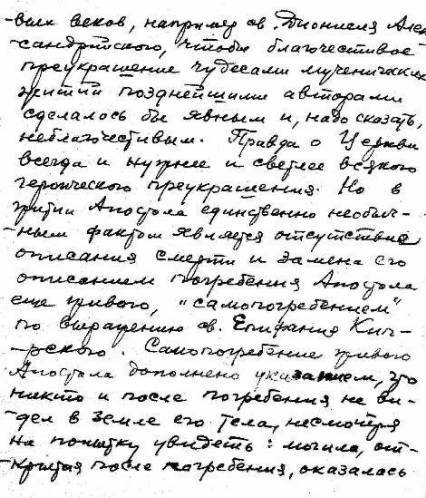 -вых веков, например св. Дионисия Алек-
сандрийского, чтобы благочестивое
преукрашение чудесами мученических
житий позднейшими авторами
сделалось бы явным и, надо сказать,
неблагочестивым. Правда о Церкви
всегда и нужнее и светлее всякого
героического преукрашения. Но в
житии Апостола единственно необыч-
-ным фактом является отсутствие
описания смерти и замена его
описанием погребения Апостола
еще живого, "самопогребением"
по выражению св. Епифания Кип-
-рского. Самопогребение живого
Апостола дополнено указанием, что
никто и после погребения не ви-
-дел в земле его тела, несмотря
на попытку увидеть: могила, от-
-крытая после погребения, оказалась